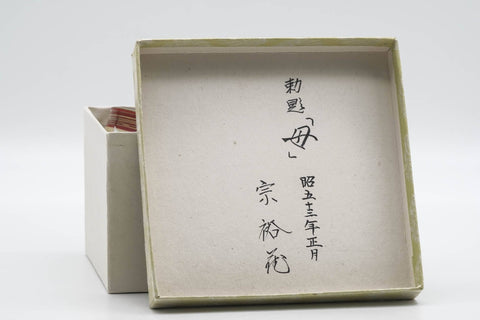 勅題
「母」
昭五十三年正月
宗裕藏